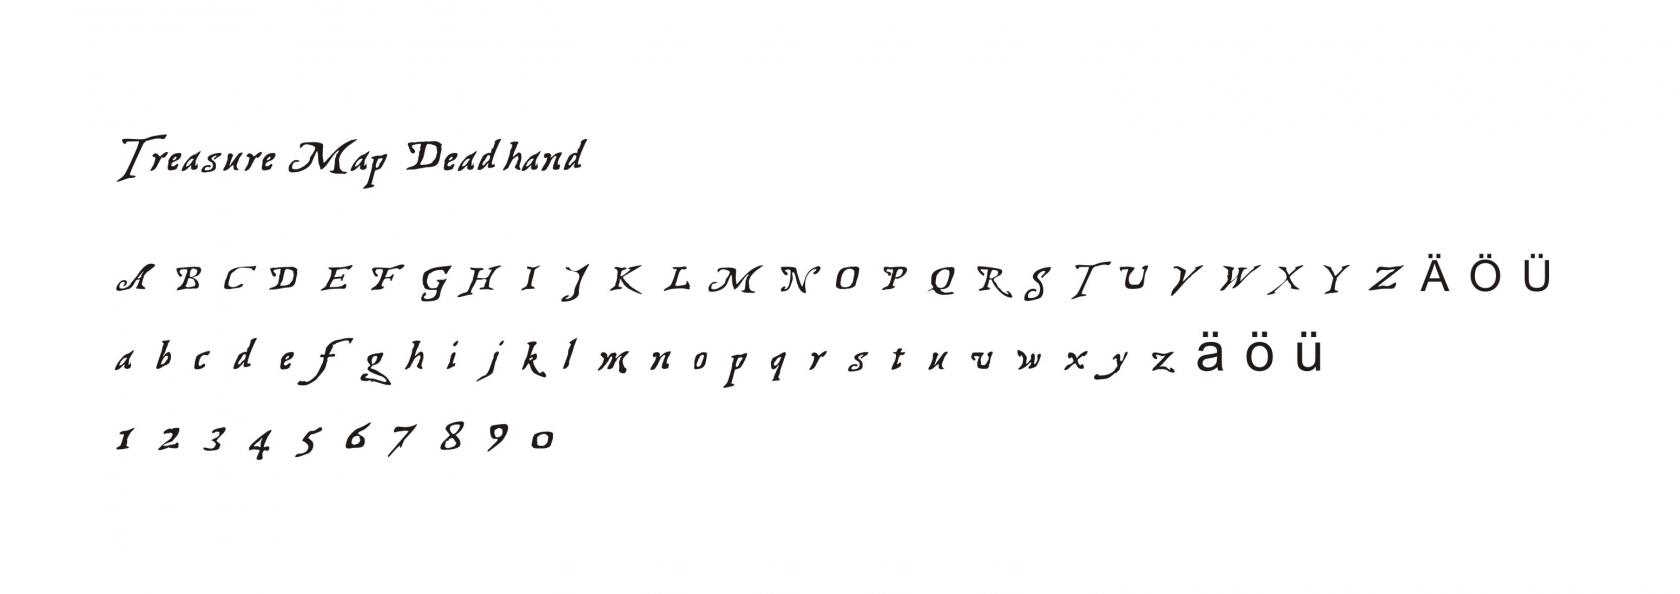 Treasure Map Deadhand
A B C D E F G H I J K L M N O P Q R S T U V W X Y Z Ä Ö Ü
a b c d e f g h i j k l m n o p q r s t u v w x y z ä ö ü
1 2 3 4 5 6 7 8 9 0